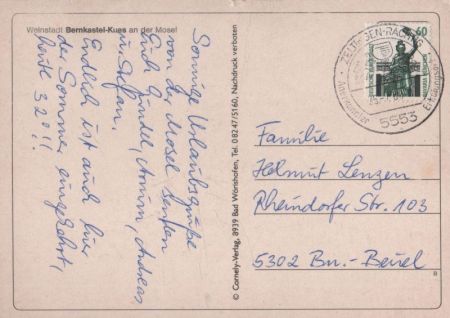 Weinstadt Bernkastel-Kues an der Mosel
Sonnige Urlaubsgrüße
von der Mosel senden
Euch Gündel, Armin, Andreas
u. Stefan.
Endlich ist auch hier
der Sommer eingekehrt,
heute 32°!!
© Cornely-Verlag, 8939 Bad Wörishofen, Tel. 08247/5160, Nachdruck verboten
60
ZELTINGEN-RACHTIG
Anerkannter Erholungsort
5553
Familie
Helmut Lenzen
Rheindorfer Str. 103
5302 Bn.-Beuel
8